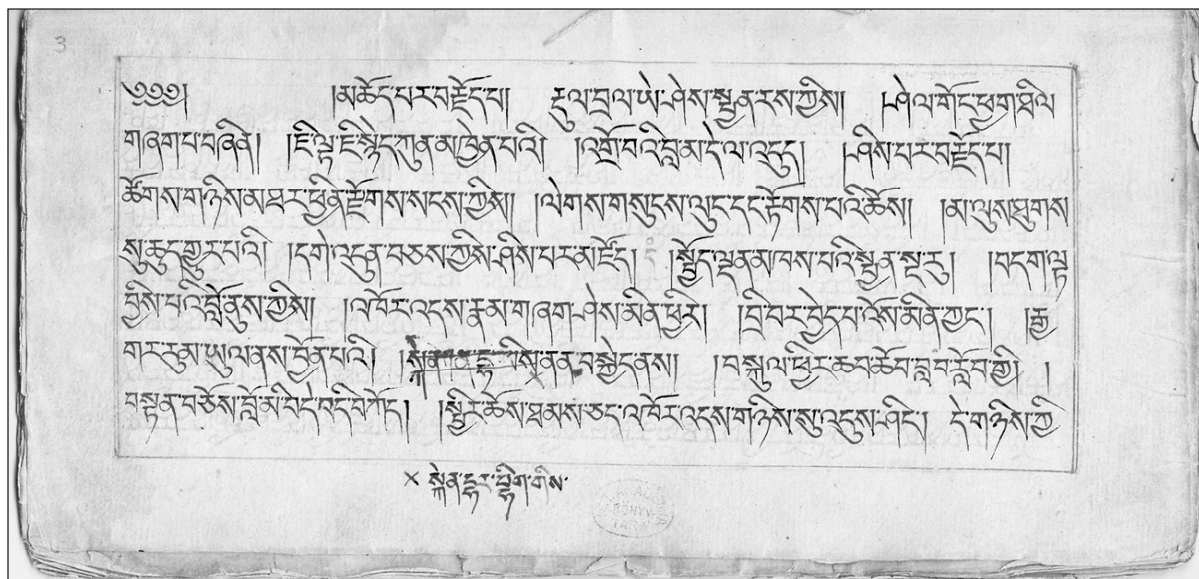 3
༄༅༅། །མཆོད་པར་བརྗོད་པ། རྡུལ་བྲལ་ཡེ་ཤེས་སྤྱན་རས་ཀྱིས།། །ཤེལ་གོང་ཕྱག་མཐིལ
གཞག་པ་བཞིན། །ཇི་ལྟ་ཇི་སྙེད་ཀུན་མཁྱེན་པའི། །འགྲོ་བའི་བླ་མ་དེ་ལ་འདུད། །ཤིས་པར་བརྗོད་པ།
ཚོགས་གཉིས་མཐར་ཕྱིན་རྫོགས་སངས་ཀྱིས།། །ལེགས་གསུངས་ལུང་དང་རྟོགས་པའི་ཆོས།། །མ་ལུས་ཐུགས
སུ་ཆུད་གྱུར་པའི། །དགེ་འདུན་བཅས་ཀྱིས་ཤིས་པར་མཛོད། །སྤྱོད་ལྡན་མཁས་པའི་སྤྱན་སྔ་རུ། །བདག་ལྟ
བྱིས་པའི་བློ་ནུས་ཀྱིས།། །འཁོར་འདས་རྣམ་གཞག་ཤས་མིན་ཕྱིར། །བྲི་བར་བྱེད་པ་འོས་མིན་ཀྱང་། །རྒྱ
གར་རུམ་ཡུལ་ནས་བྱོན་པའི། ནན་བསྐྱེད་ནས།། །བསྐུལ་ཕྱིར་
བསྟན་བཅོས་བློ་མི་བདེ་འདི་བཀོད། །སྤྱིར་ཆོས་ཐམས་ཅད་འཁོར་འདས་གཉིས་སུ་འདུས་ཤིང་། དེ་གཉིས་ཀྱི
× སྐེན་དྷར་བྷེག་གིས་